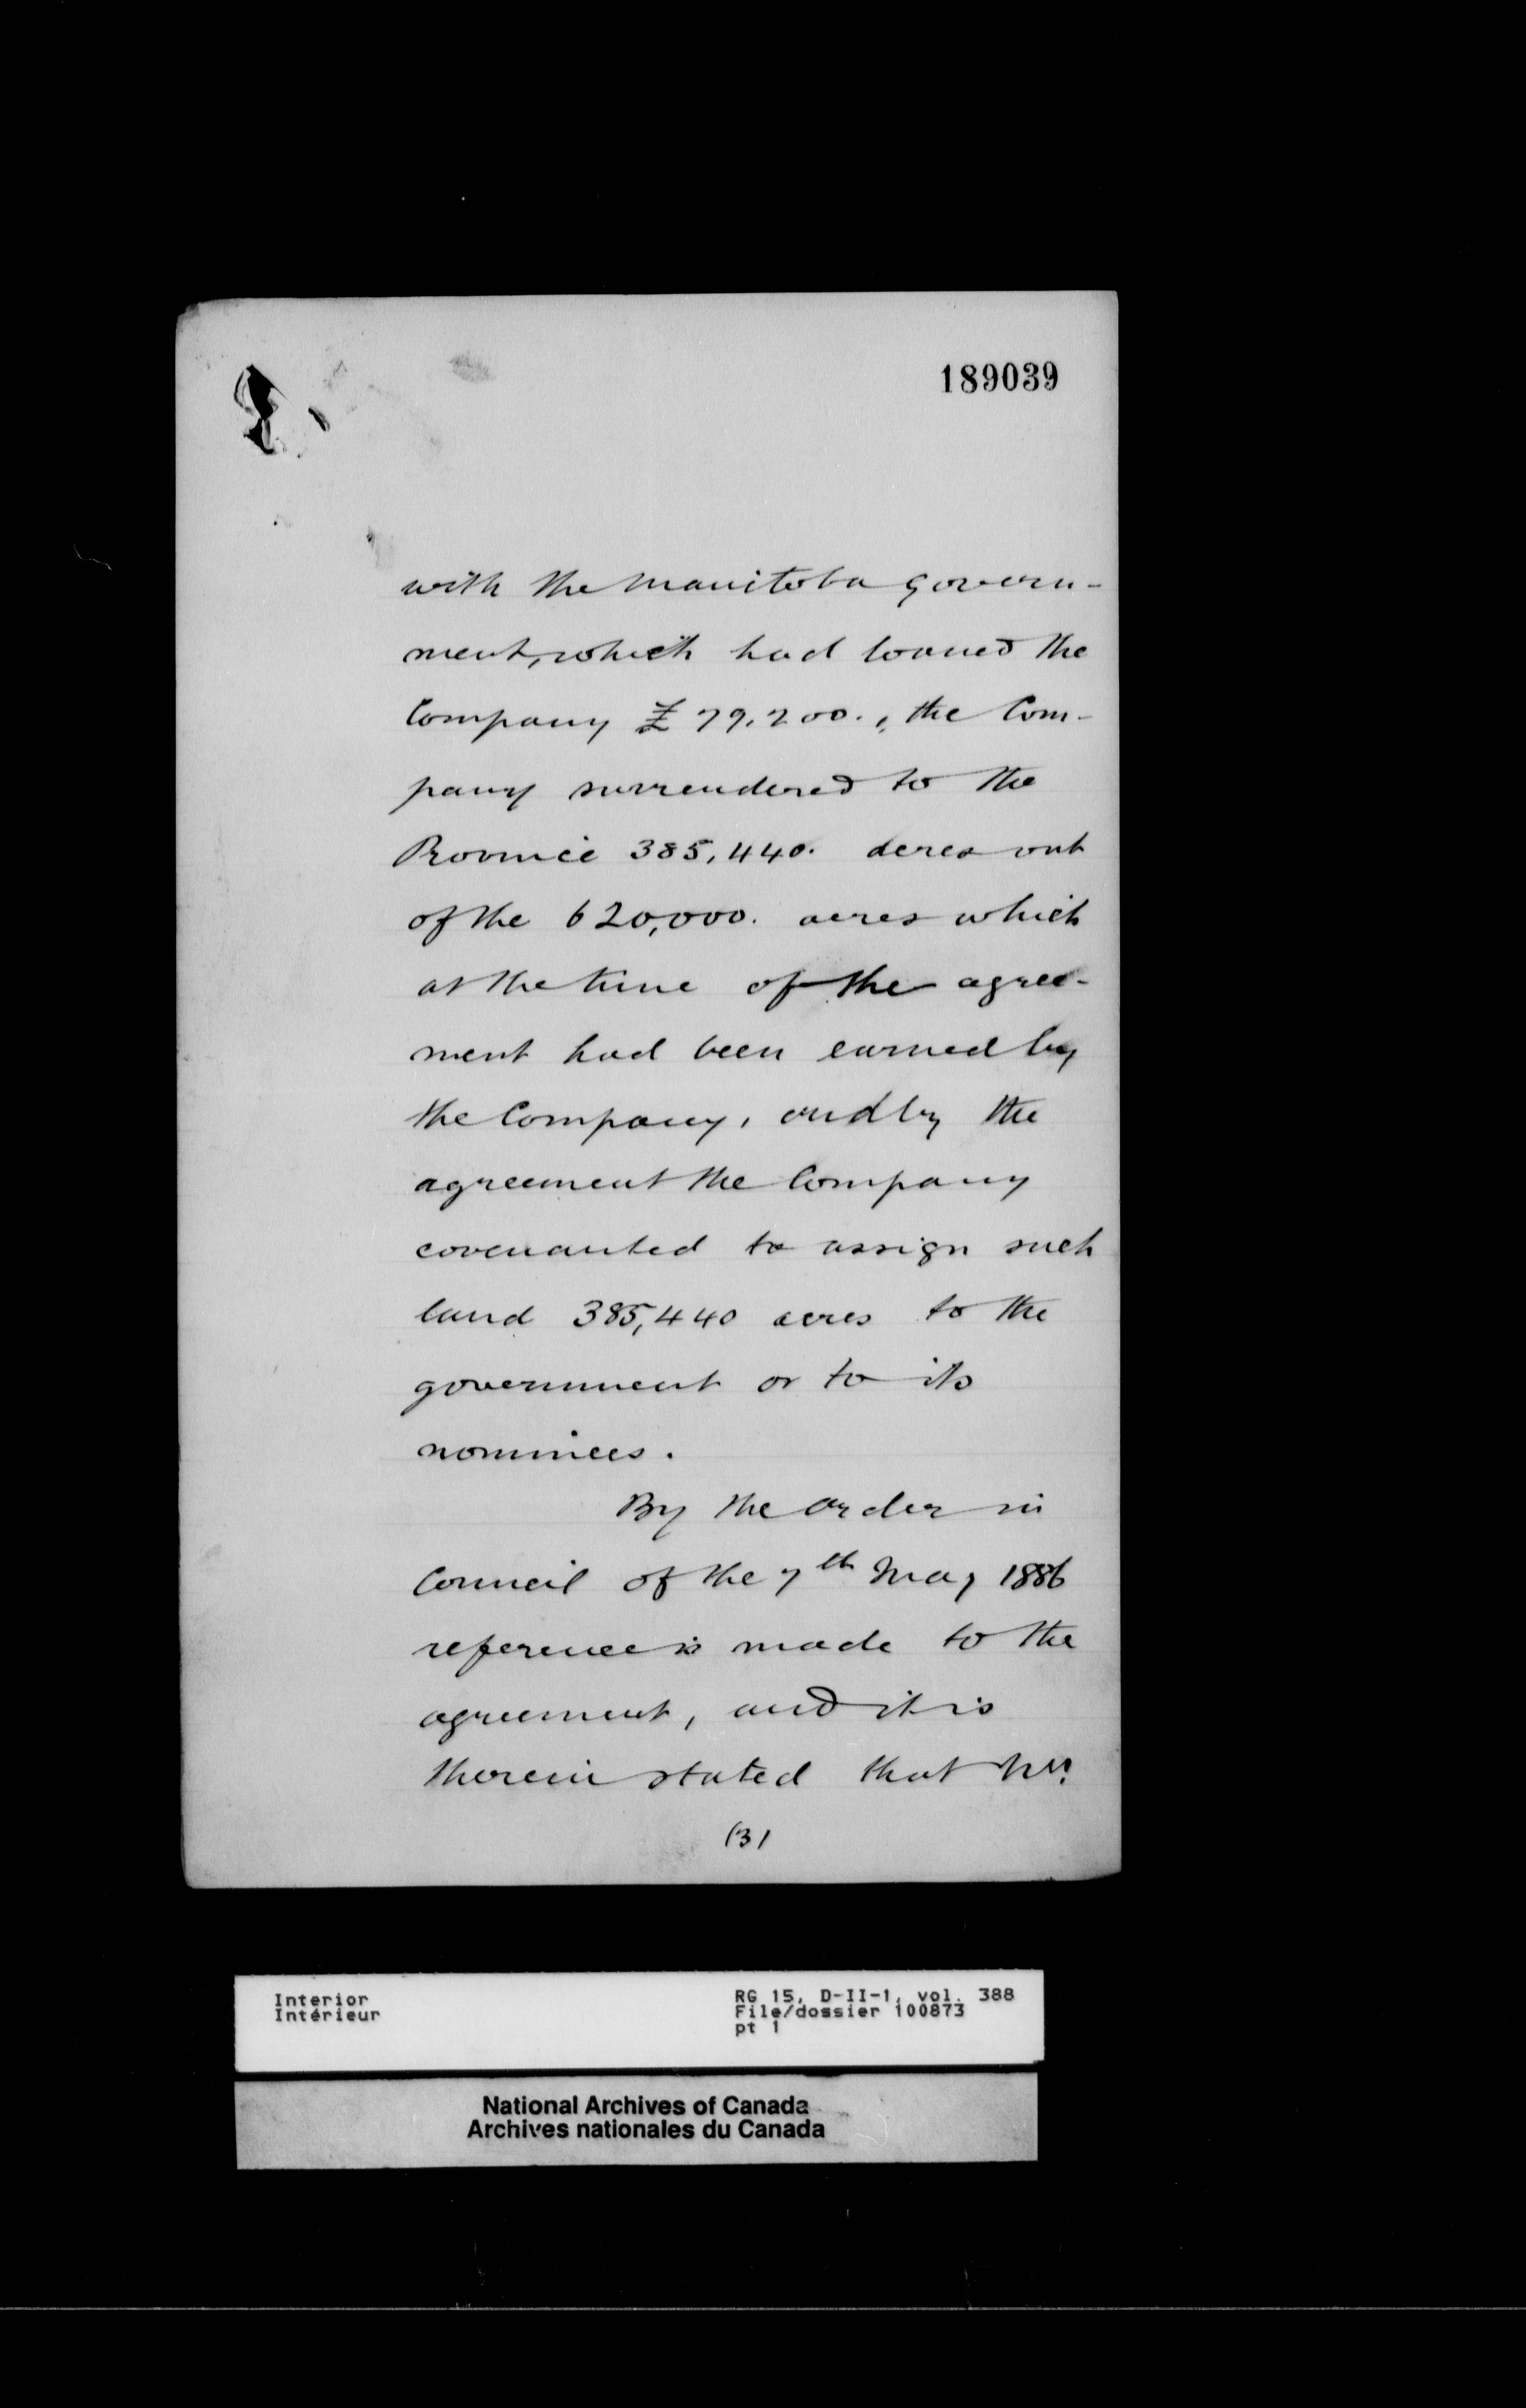 189039
with the Manitoba govern-
ment, which had loaned the
Company £79,200., the Com-
pany surrendered to the
Province 385,440. acres out
of the 620,000. acres which
at the time of the agree-
ment had been earned by
the Company, and by the
agreement the Company
covenanted to assign such
land 385,440 acres to the
government or to its
nominees.
By the order in
Council of the 7th May 1886
reference is made to the
agreement, and it is
therein stated that Mr.
(3)
Interior RG 15, D-II-1, vol. 388
Intérieur File/dossier 100873
pt 1
National Archives of Canada
Archives nationales du Canada